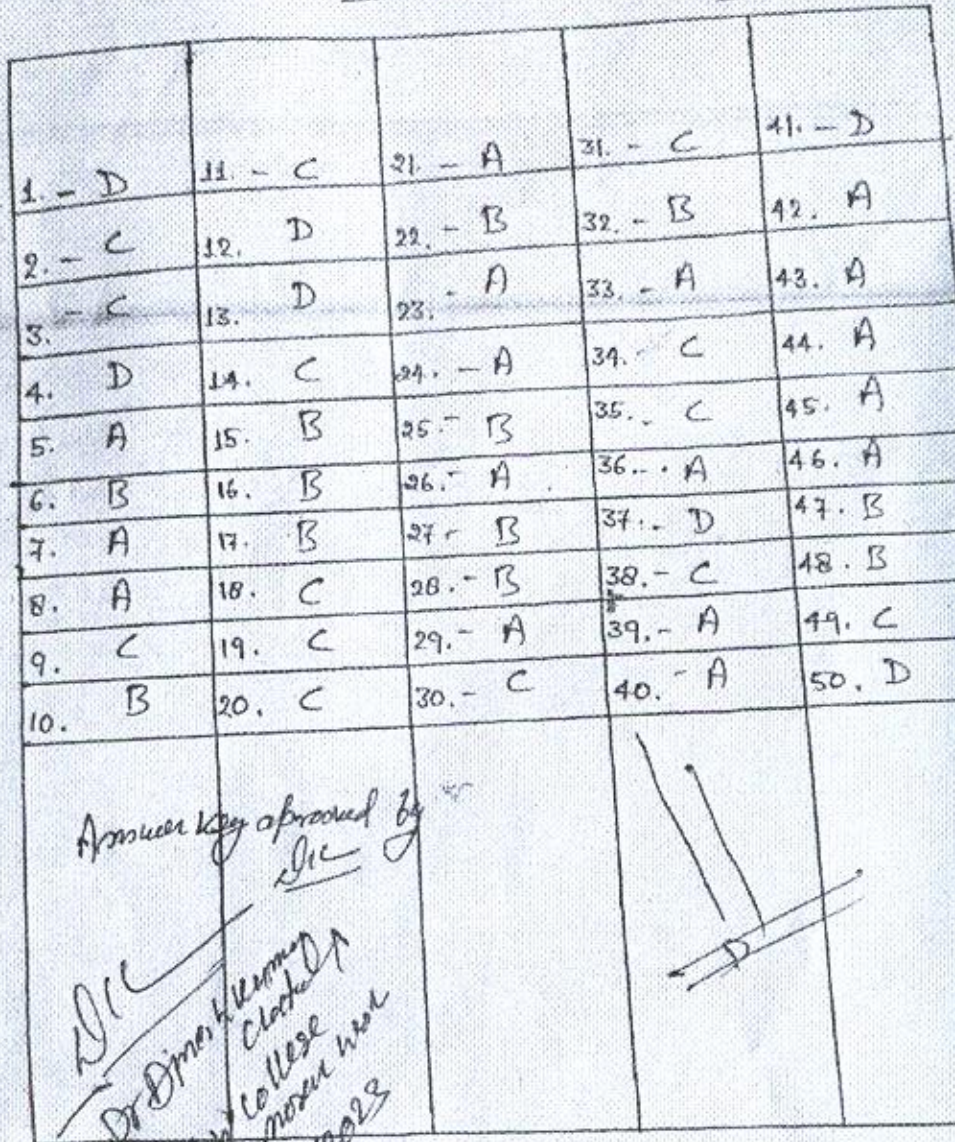 1. - D 11. - C 21. - A 31. - C 41. - D
2. - C 12. D 22. - B 32. - B 42. A
3. - C 13. D 23. - A 33. - A 43. A
4. D 14. C 24. - A 34. - C 44. A
5. A 15. B 25. - B 35. - C 45. A
6. B 16. B 26. - A 36. - A 46. A
7. A 17. B 27. - B 37. - D 47. B
8. A 18. C 28. - B 38. - C 48. B
9. C 19. C 29. - A 39. - A 49. C
10. B 20. C 30. - C 40. - A 50. D
Answer key approved by
Dr Dinesh Kumar
College